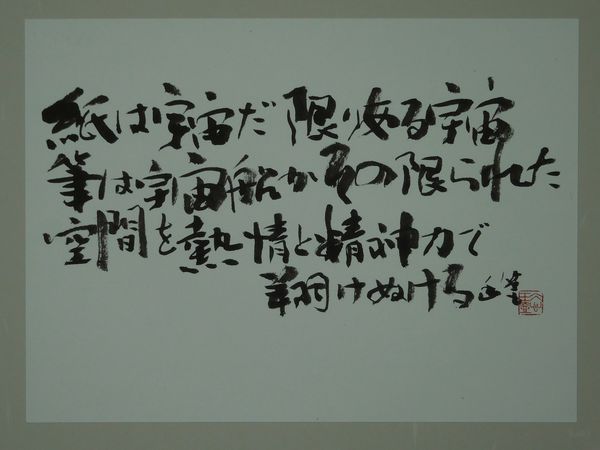 紙は宇宙だ 限りある宇宙
筆は宇宙船か その限られた
空間を熱情と精神力で
翔けぬける